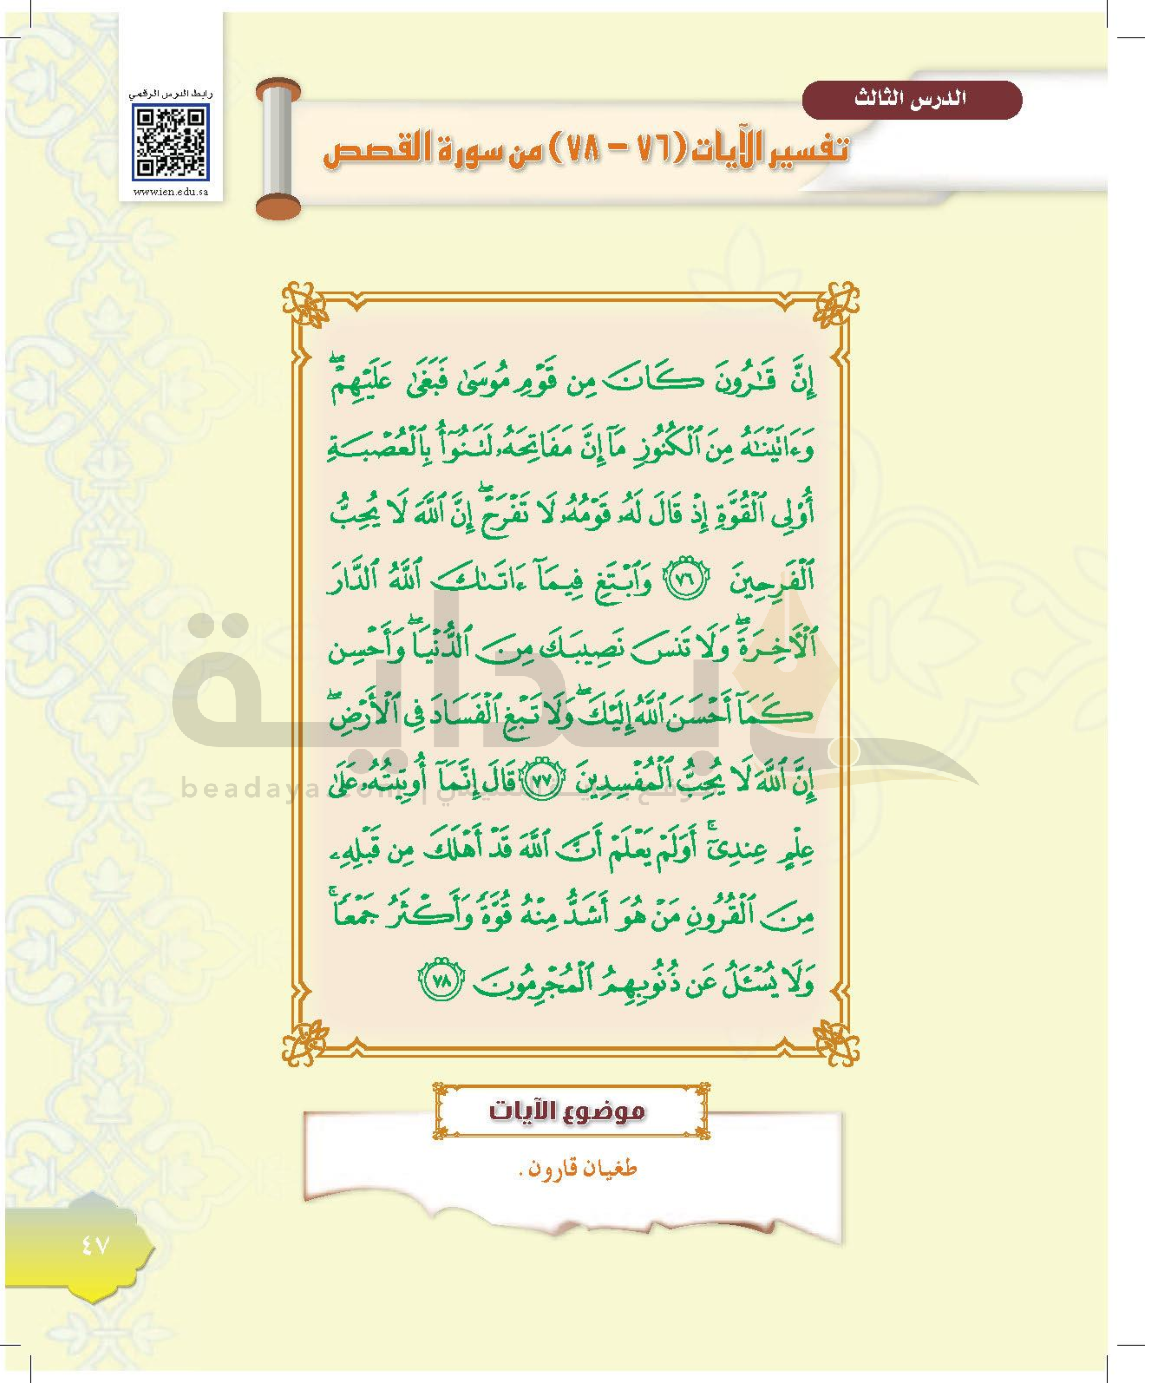 رابط الدرس الرقمي
www.ien.edu.sa
الدرس الثالث
تفسير الآيات (٧٦ – ٧٨) من سورة القصص
إِنَّ قَٰرُونَ كَانَ مِن قَوْمِ مُوسَىٰ فَبَغَىٰ عَلَيْهِمْۖ
وَءَاتَيْنَٰهُ مِنَ ٱلْكُنُوزِ مَآ إِنَّ مَفَاتِحَهُۥ لَتَنُوٓأُ بِٱلْعُصْبَةِ
أُوْلِى ٱلْقُوَّةِ إِذْ قَالَ لَهُۥ قَوْمُهُۥ لَا تَفْرَحْۖ إِنَّ ٱللَّهَ لَا يُحِبُّ
ٱلْفَرِحِينَ ٧٦ وَٱبْتَغِ فِيمَآ ءَاتَىٰكَ ٱللَّهُ ٱلدَّارَ
ٱلْأَخِرَةَۖ وَلَا تَنسَ نَصِيبَكَ مِنَ ٱلدُّنْيَاۖ وَأَحْسِن
كَمَآ أَحْسَنَ ٱللَّهُ إِلَيْكَۖ وَلَا تَبْغِ ٱلْفَسَادَ فِى ٱلْأَرْضِۖ
إِنَّ ٱللَّهَ لَا يُحِبُّ ٱلْمُفْسِدِينَ ٧٧ قَالَ إِنَّمَآ أُوتِيتُهُۥ عَلَىٰ
عِلْمٍ عِندِىٓۚ أَوَلَمْ يَعْلَمْ أَنَّ ٱللَّهَ قَدْ أَهْلَكَ مِن قَبْلِهِۦ
مِنَ ٱلْقُرُونِ مَنْ هُوَ أَشَدُّ مِنْهُ قُوَّةً وَأَكْثَرُ جَمْعًاۚ
وَلَا يُسْـَٔلُ عَن ذُنُوبِهِمُ ٱلْمُجْرِمُونَ ٧٨
بداية
موضوع الآيات
طغيان قارون .
٤٧